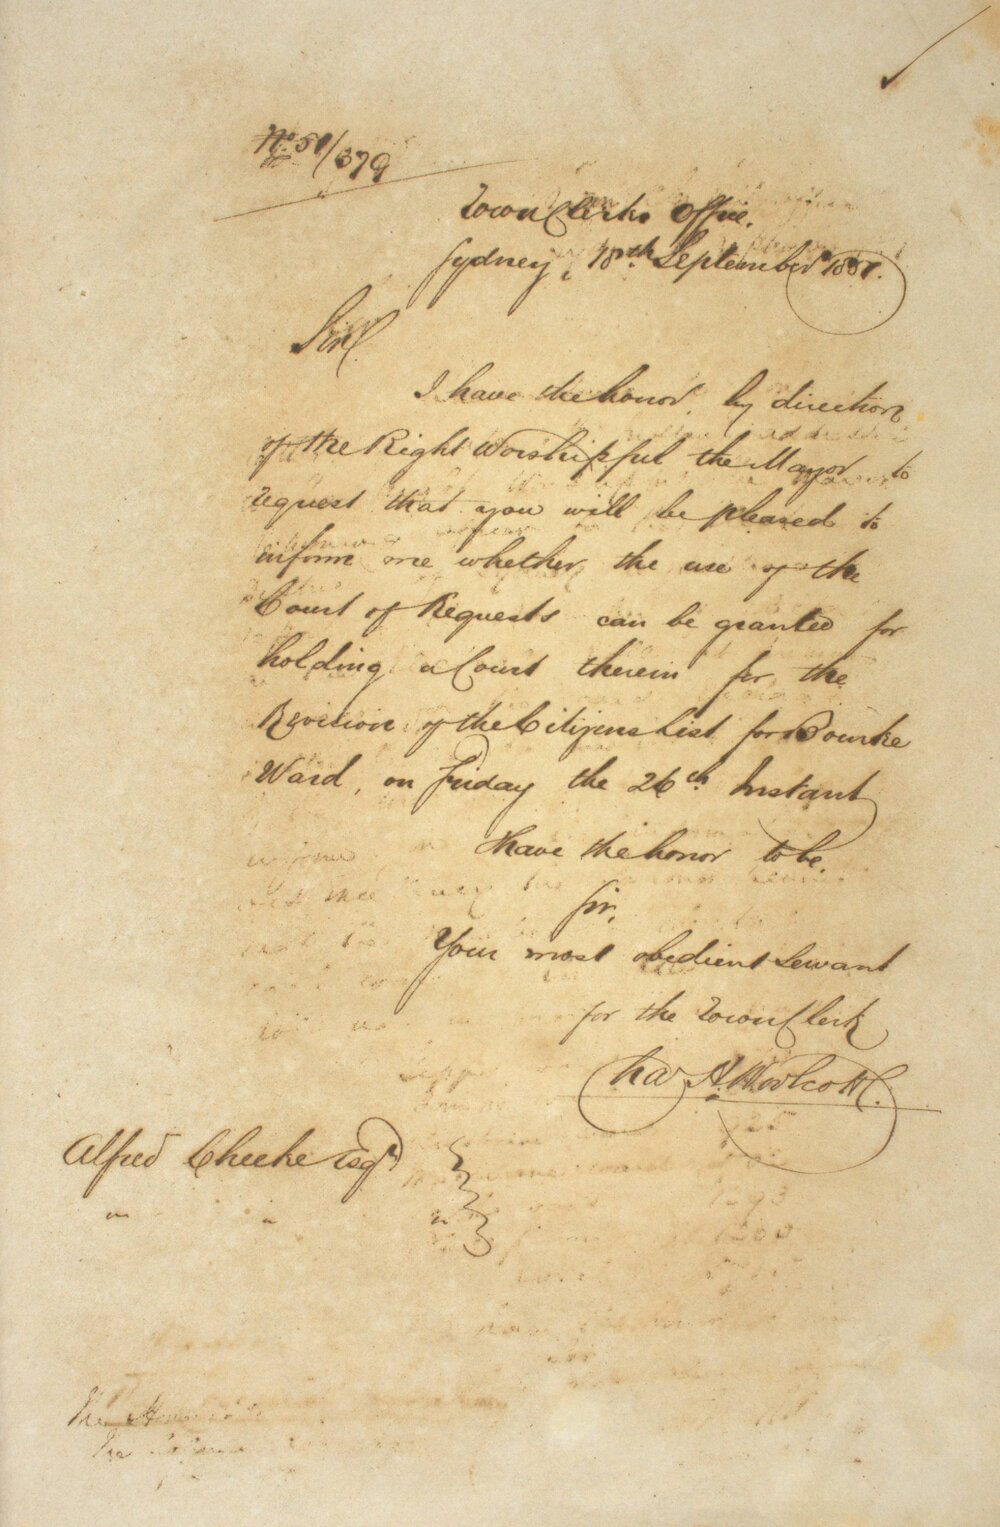 No 51/379
Town Clerks Office.
Sydney, 18th September 1851.
Sir
I have the honor, by direction
of the Right Worshipful the Mayor to
request that you will be pleased to
inform me whether the use of the
Court of Requests can be granted for
holding a Court therein for the
Revision of the Citizens List for Bourke
Ward, on Friday the 26th Instant
I have the honor to be,
Sir,
Your most obedient Servant
for the Town Clerk
Chas H. Woolcott.
Alfred Cheeke Esqr
" " "